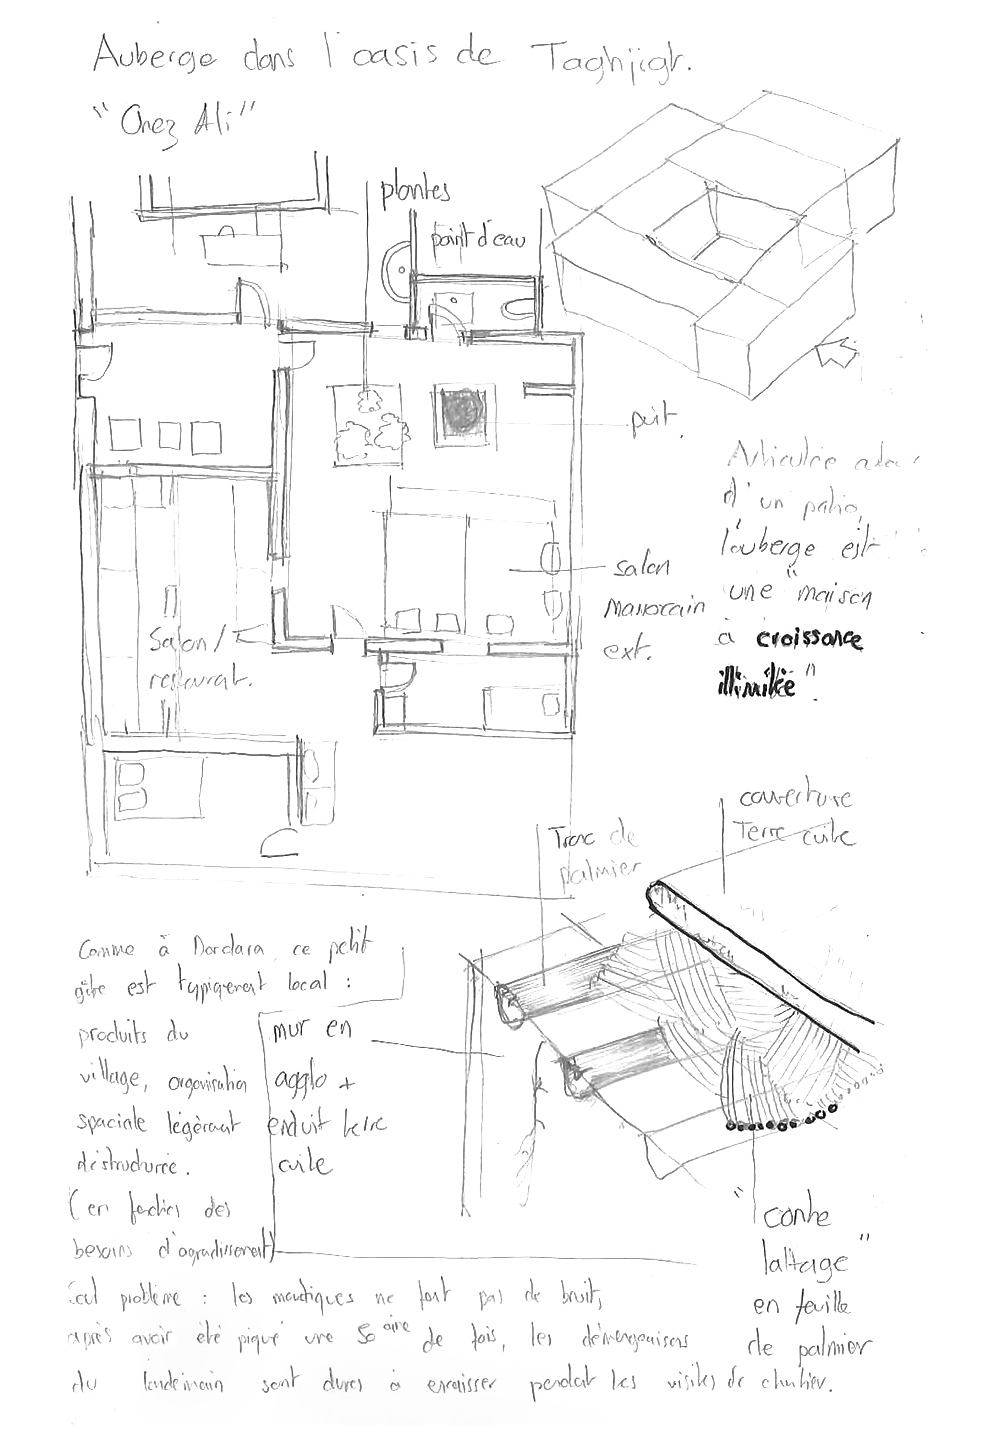 Auberge dans l'oasis de Taghjigt.
"Chez Ali"
plantes
point d'eau
puit.
Articulée
d'un patio,
l'auberge est
une "maison
à croissance
illimitée".
salon
Marrocain
ext.
Salon/
restaurat.
Tronc de
palmier
couverture
Terre cuite
Comme à Dardara, ce petit
gîte est typiquement local :
produits du
village, organisation
spaciale légèrement
déstructurée.
(en fonction des
besoins d'agradissement)
mur en
agglo +
enduit terre
cuite
"contre
lattage"
en feuille
de palmier
Seul problème : les moustiques ne font pas de bruit,
après avoir été piqué une 50aine de fois, les démangeaisons
du lendemain sont dures à encaisser pendant les visites de chantier.